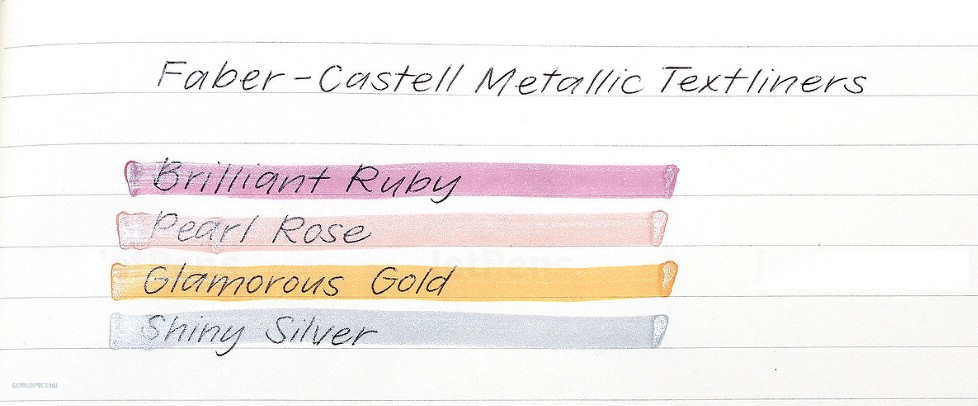 Faber-Castell Metallic Textliners
Brilliant Ruby
Pearl Rose
Glamorous Gold
Shiny Silver